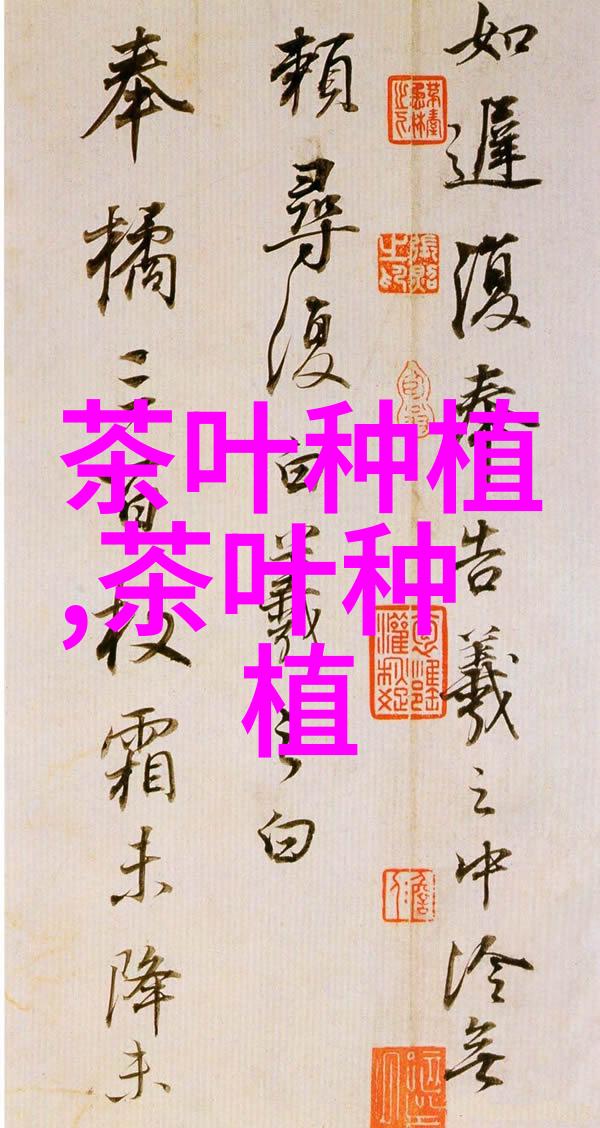 如遲復奉告羲之中冷無
賴尋復白羲之白
奉橘三百枚霜未降未
茶叶种植
,茶叶种
植